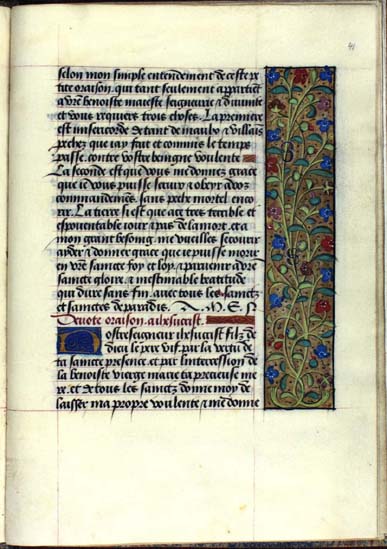 41
selon mon simple entendement de ceste pe
tite oraison. qui tant seulement appartiẽt
a vr̃e benoiste maieste seigneurie & diuinite
et vous requiers trois choses. La premiere
est misericorde de tant de maulx & villais
pechez que iay fait et commis le temps
passe. contre vostre benigne voulente
La seconde est qui vous me donnez grace
que ie vous puisse seruir & obeyr a voz
commandemẽs. sans peche mortel enco
rir. La tierce si est que a ce tres terrible et
espouentable iour & pas de la mort. et a
mon grant besoing. me vueilles secourir
ayder & donner grace que ie puisse morir
en vr̃e saincte foy et loy. & paruenir a vr̃e
saincte gloire. & inestimable beatitude
qui dure sans fin. auec tous les sainctz
et sainctes de paradis. A. M. E. N
Deuote oraison a ihesucrist.
Nostre seigneur ihesucrist filz de
dieu le pere vif. par la vertu de
ta saincte presence. et par lintercession de
la benoiste vierge marie ta precieuse me
re. et de tous les sainctz donne moy de
laisser ma propre voulente & me donne